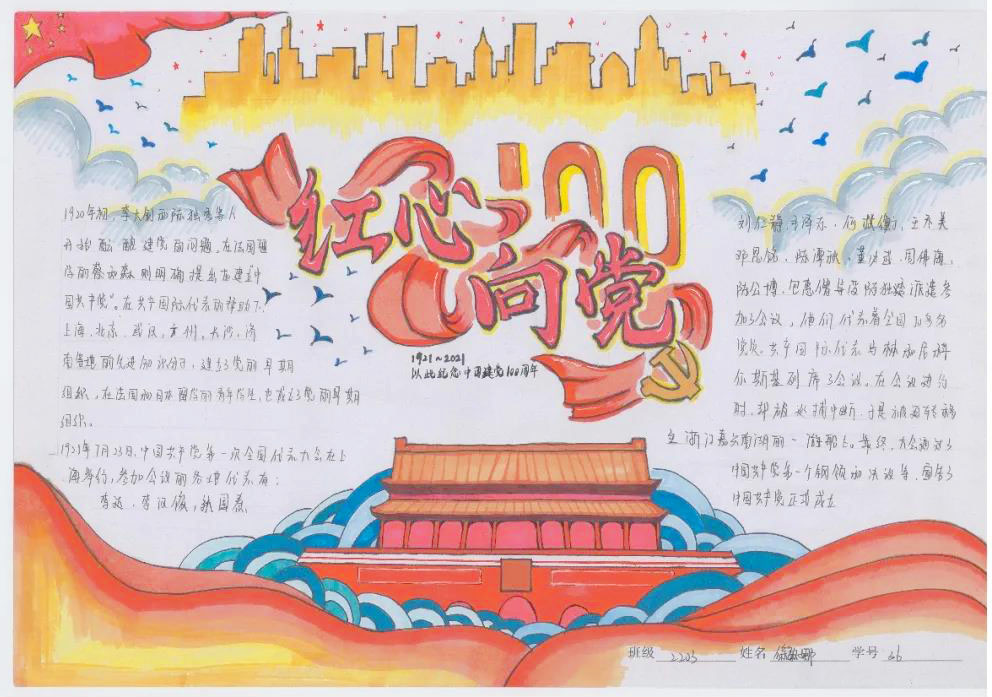 100
红心
向党
1921~2021
以此纪念中国建党100周年
1920年初，李大钊
开始酝酿建党的问题。在法国
的蔡和森则明确提出
国共产党”。在共产国际代表的帮助下，
上海、北京、武汉、广州、
的先进知识分子，建立了党的早期
组织，在法国和日本留学的青年学生，也成立了党的早期
组织。
年7月23日，中国共产党第一次全国代表大会在上
海举行，参加会议的各地代表有：
李达、李汉俊、
刘仁静、毛泽东、何叔衡、王尽美
邓恩铭、陈潭秋、董必武、周佛海、
陈公博、包惠僧
加了会议，他们代表着全国
党员。共产国际代表马林和尼科
尔斯基列席了会议。在会议进行
时，
浙江嘉兴南湖的一
中国共产党第一个纲领和决议等，宣告了
中国共产党正式成立
班级 2203 姓名 学号 26